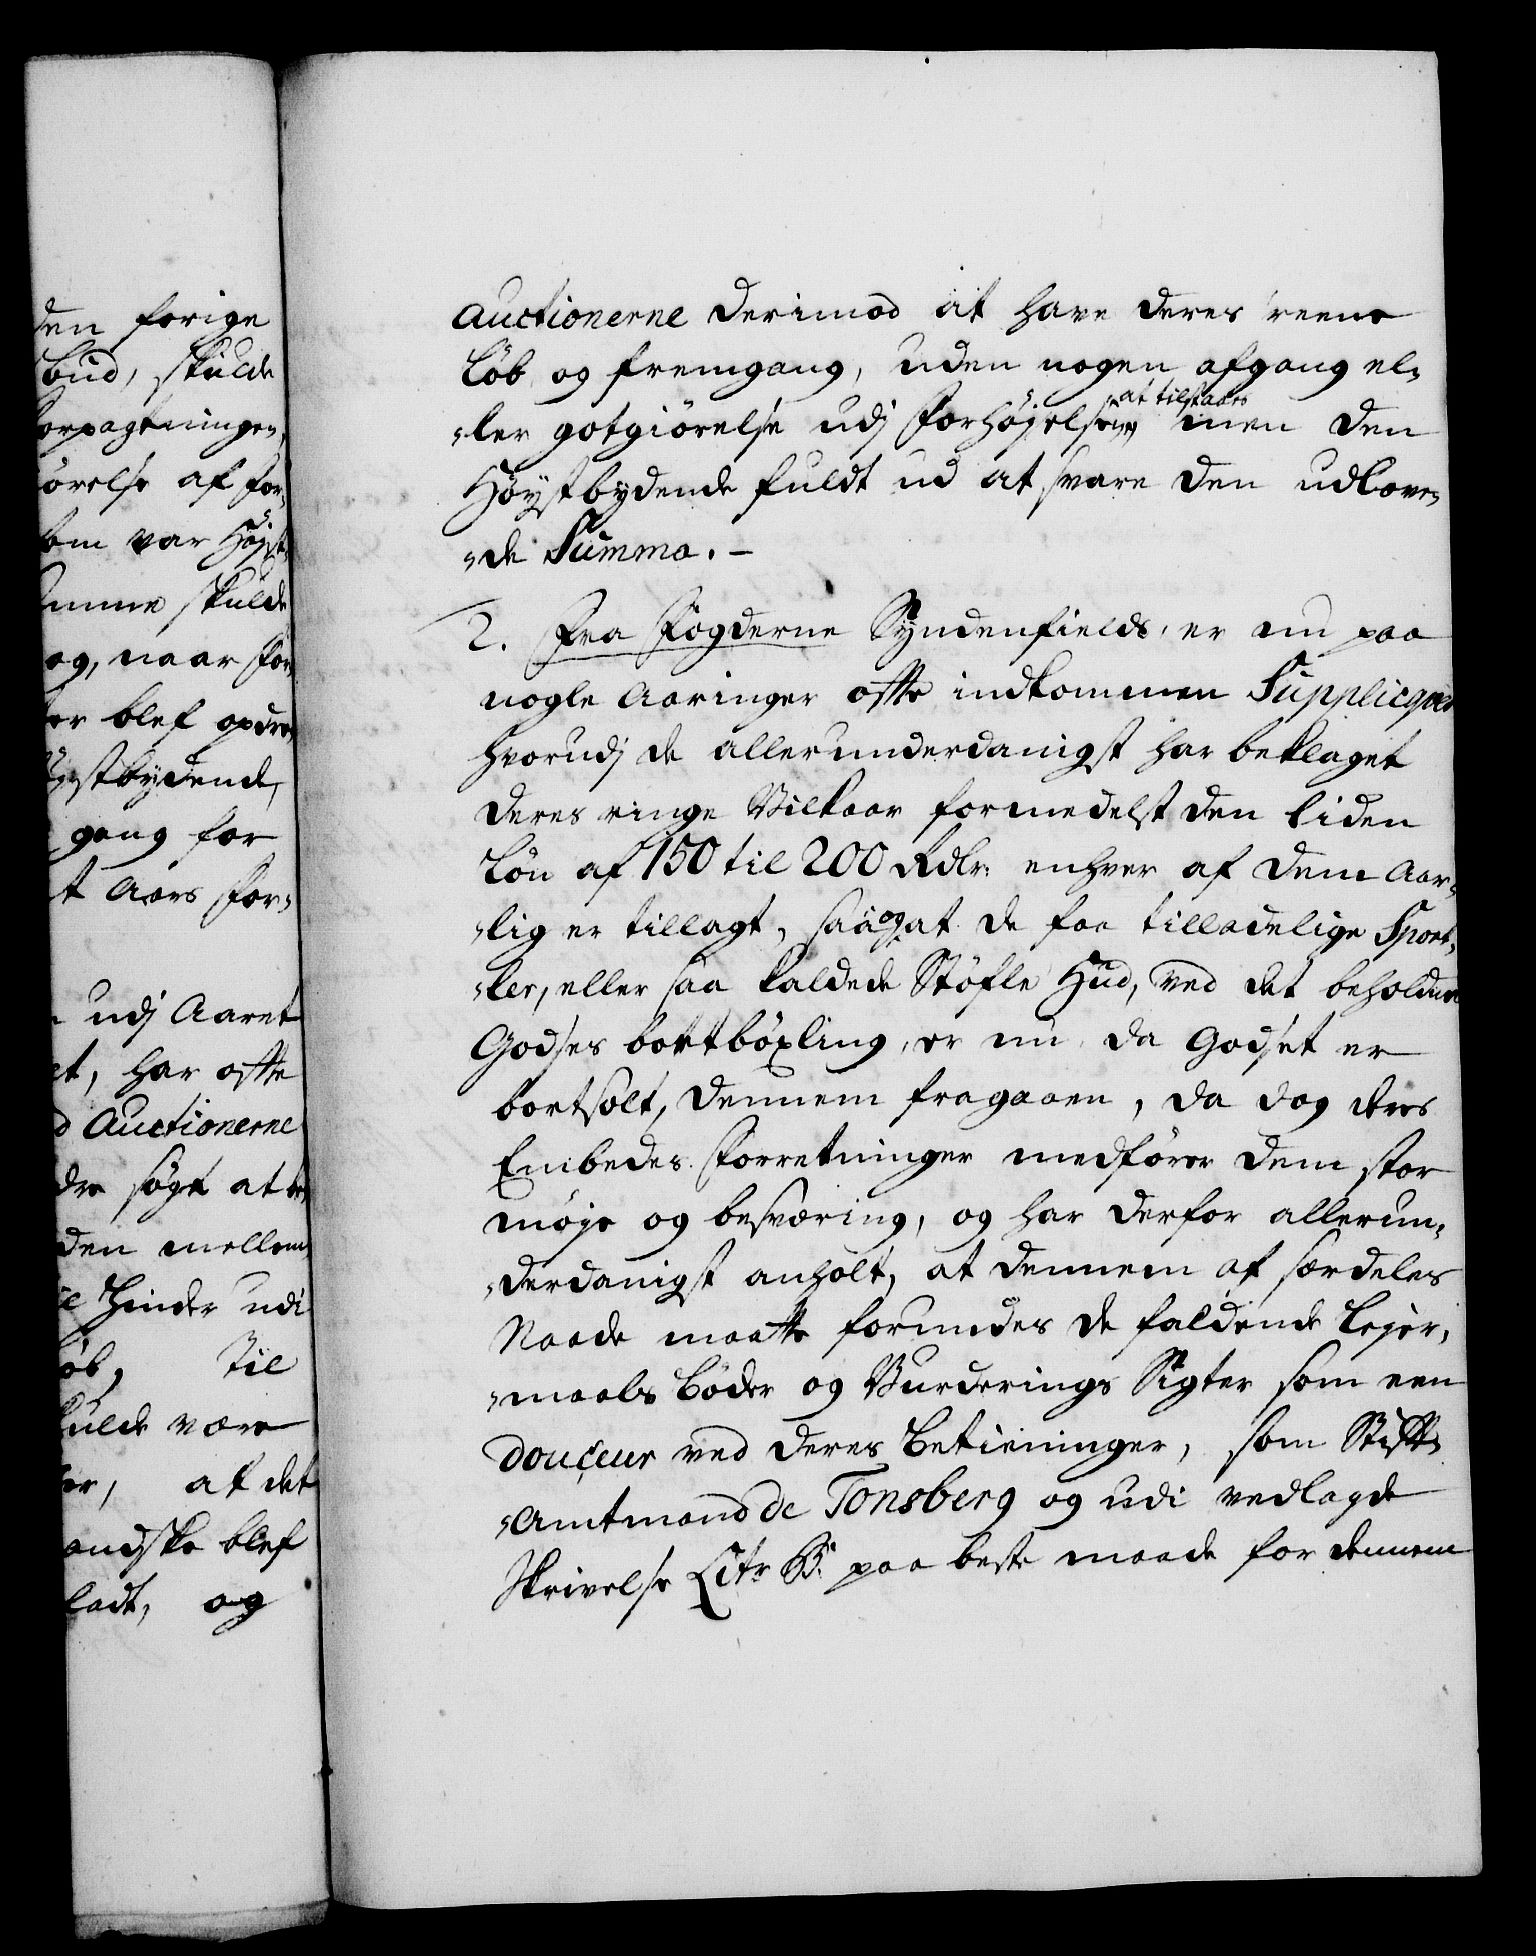 den forige
bud, skulde
orpagtningen,
örelse af for-
som var Höyst-
skulde
og, naar for-
er blef opdra-
ystbydende,
gang for
t Aars for-
udj Aaret
et, har offte
d Auctionerne
dre søgt at
den mellem
Hinder udi
øb, Til
skulde være
er, at det
andske blef
ladt, og
Auctionerne derimod at have deres reene
Löb og fremgang, uden nogen afgang el-
-ler gotgiörelse udj Forhöyelsen at tilstaaes men den
Höystbydende fuldt ud at svare den udlove-
-de Summa. -
2. Fra Fogderne Syndenfields, er nu paa
nogle Aaringer offte indkommen Supplicqver
hvorudj de allerunderdanigst har beklaget
deres ringe Vilkaar formedelst den liden
Lön af 150 til 200 Rdlr. enhver af dem Aar-
-lig er tillagt, saa og at de faa tilladelige Sport-
-ler, eller saa kaldede Stöfle Hud, ved det beholdne
Godses bortböxling, er nu, da Godset er
bortsolt, dennem fragaaen, da dog deres
Embedes Forretninger medförer dem stor
möje og besværing, og har derfor allerun-
-derdanigst anholt, at dennem af særdeles
Naade maatte forundes de faldende Lejer-
-maals Böder og Vurderings Sigter som een
douceur ved deres Betieninger, som Stift-
-Amtmand de Tonsberg og udi vedlagde
Skrivelse Litr. B. paa beste maade for dennem